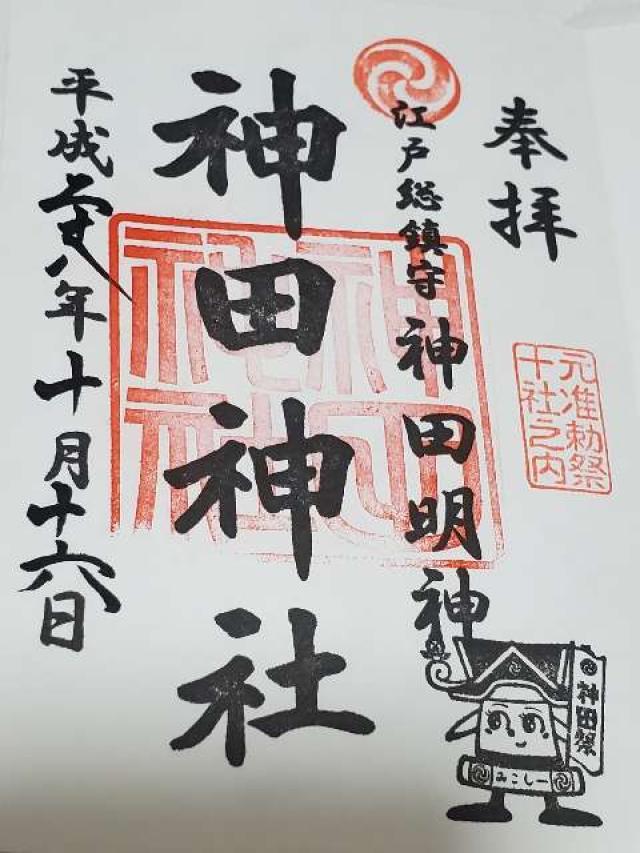 奉拝
元准勅祭
十社之内
江戸総鎮守 神田明神
神田神社
神田神社
平成二十八年十月十六日
神田祭
みこしー